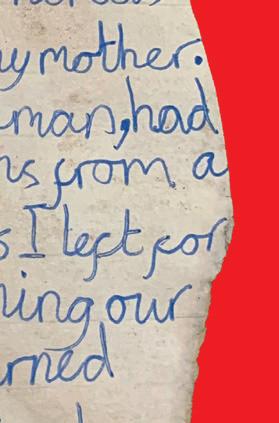 my mother.
man, had
ns from a
s I left for
ning our
rned